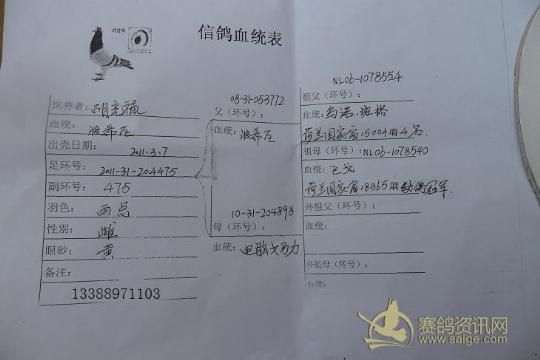 信鸽血统表
饲养者：胡光疏
血统：波希瓦
出壳日期：2011.3.7
足环号：2011-31-204475
副环号：475
羽色：雨点
性别：雌
眼砂：黄
备注：
13388971103
08-31-053772
父（环号）：
血统：波希瓦
10-31-204898
母（环号）：
血统：电脑戈马力
NL06-1078554
祖父（环号）：
血统：约诺·斑格
荷兰国家赛15004羽4名
祖母（环号）：NL06-1078540
血统：飞戈
荷兰国家赛18365羽 冠军
外祖父（环号）：
血统：
外祖母（环号）：
血统：
赛鸽资讯网
www.saige.com